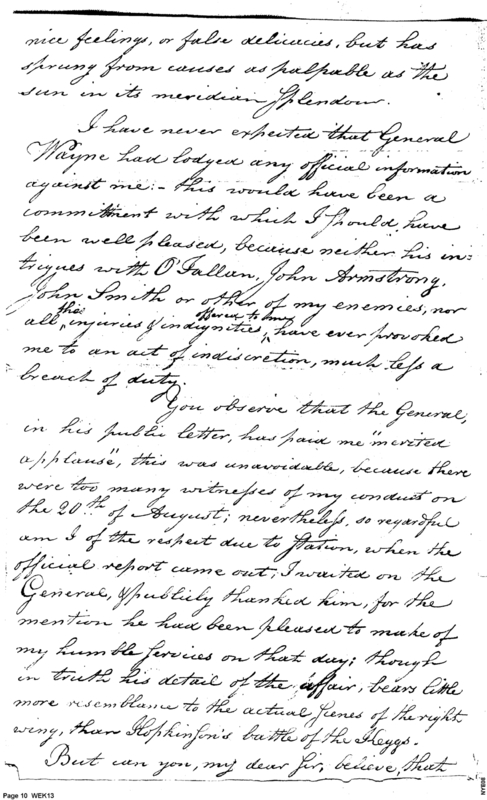 nice feelings, or false delicacies, but has
sprung from causes as palpable as the
sun in its meridian Splendour.
I have never expected that General
Wayne had lodged any official information
against me:- this would have been a
commitment with which I Should have
been well pleased, because neither his in=
trigues with O'Fallan, John Armstrong,
John Smith or other of my enemies, nor
all the injuries & indignities, offered to me, have ever provoked
me to an act of indiscretion, much less a
breach of duty.
You observe that the General,
in his public letter, has paid me "merited
applause", this was unavoidable, because there
were too many witnesses of my conduct on
the 20th of August; nevertheless, so regardful
am I of the respect due to Station, when the
official report came out, I waited on the
General, & publicly thanked him, for the
mention he had been pleased to make of
my humble Services on that day; though
in truth his detail of the affair, bears little
more resemblance to the actual Scenes of the right
wing, than Hopkinson's battle of the Keggs.
But can you, my dear Sir, believe, that
Page 10 WEK13
NYE06